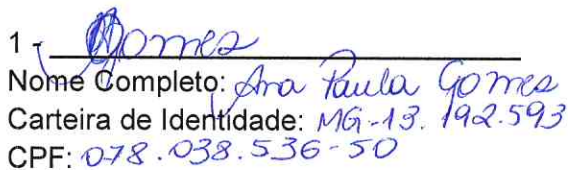 1 - Gomes
Nome Completo: Ana Paula Gomes
Carteira de Identidade: MG-13.192.593
CPF: 078.038.536-50